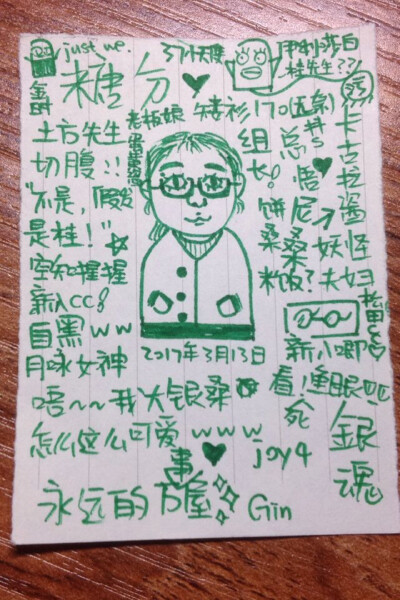 just we.
37小天使
伊利莎白
桂先生??
糖分
金时
老板娘
矮杉170
土方先生
切腹!!
组长!
总悟
卡古拉酱
"不是,假发
是桂!"
饼尼
桑桑
妖怪
夫妇
米饭?
空知握握
新八CC!
自黑ww
月咏女神
2017年3月13日
新小唧
看!(重眼
死
唔~~我大银桑
怎么这么可爱www
joy4
銀魂
永远的万事屋
Gin